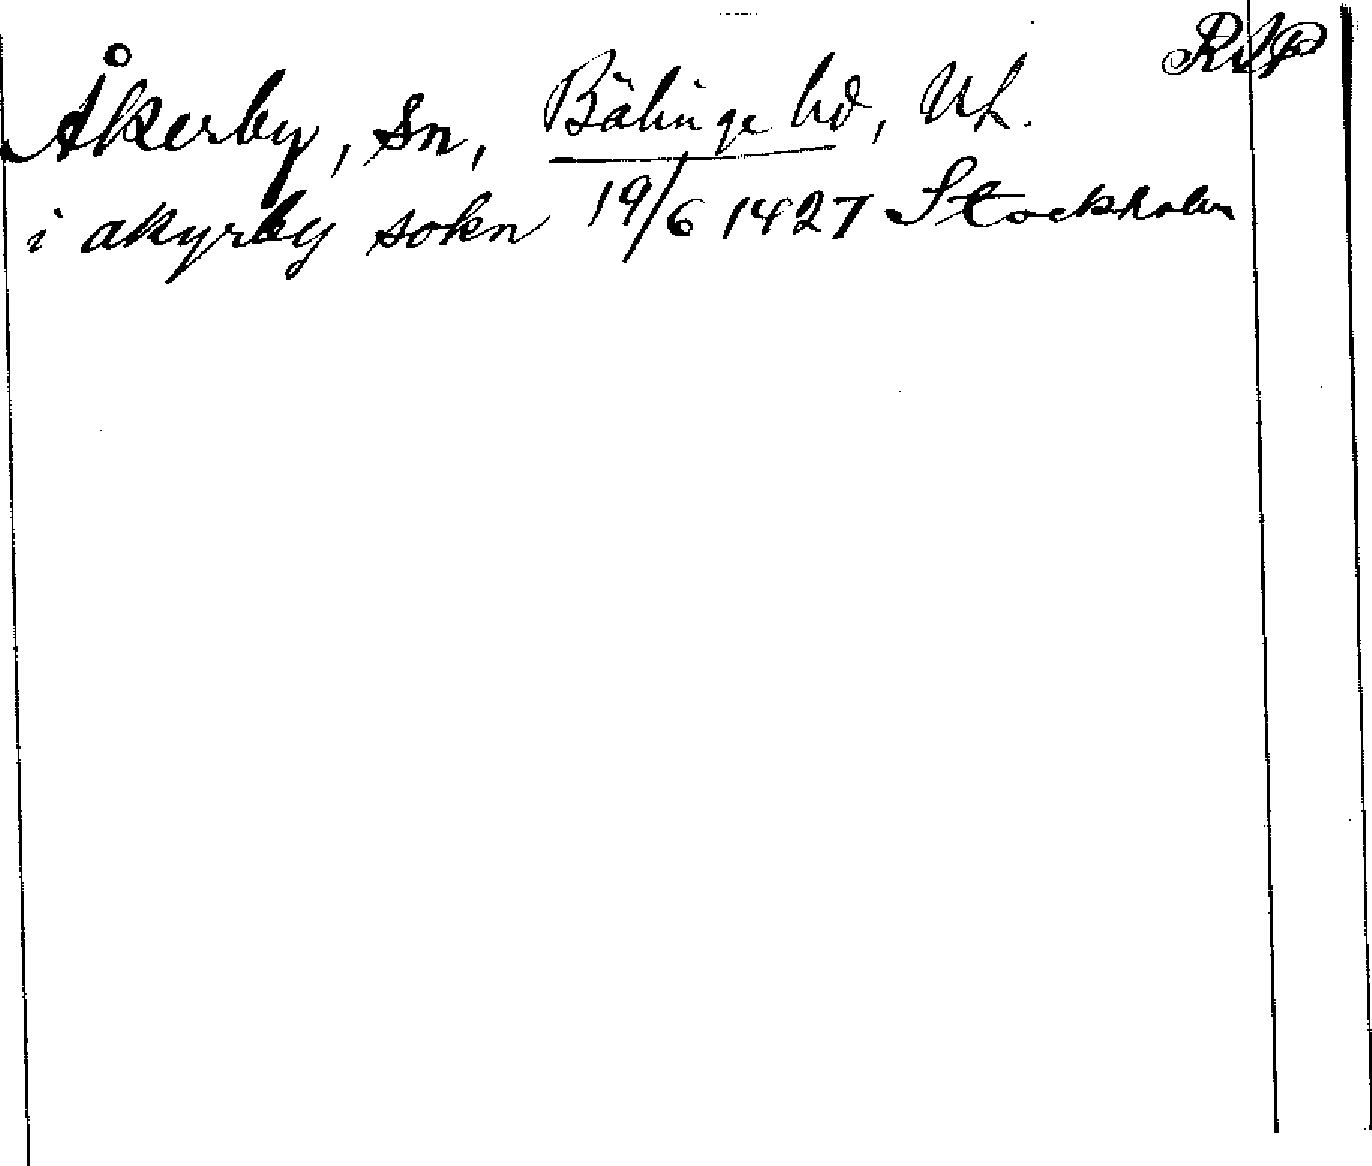 RAP
Åkerby, Sn, Bälinge hd, Upl.
i akyrby sokn 19/6 1427 Stockholm